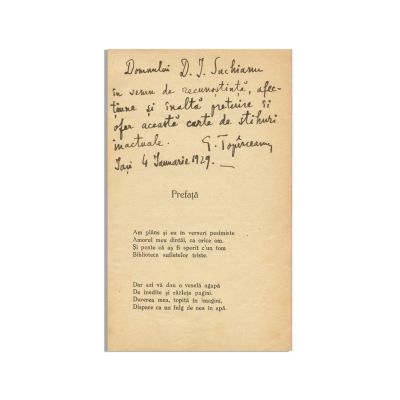 Domnului D. I. Suchianu
în semn de recunoștință, afec-
țiune și înaltă prețuire îi
ofer această carte de stihuri
inactuale. G. Topîrceanu
Iași 4 Ianuarie 1929.
Prefață
Am plâns și eu în versuri pesimiste
Amorul meu dintâi, ca orice om.
Și poate că aș fi sporit c'un tom
Biblioteca sufletelor triste.
Dar azi vă dau o veselă agapă
De inedite și răzlețe pagini.
Durerea mea, topită în imagini,
Dispare ca un fulg de nea în apă.